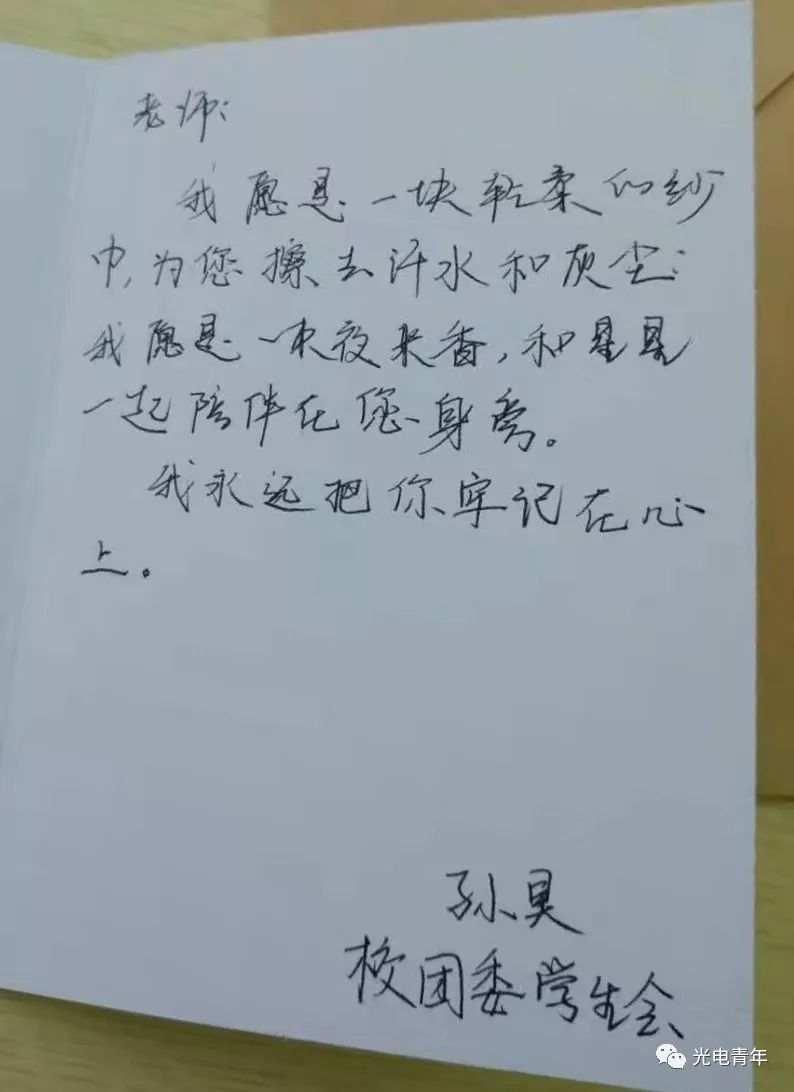 老师：
我愿是一块轻柔的纱
巾，为您擦去汗水和灰尘；
我愿是一束夜来香，和星星
一起陪伴在您身旁。
我永远把你牢记在心
上。
孙昊
校团委学生会
光电青年